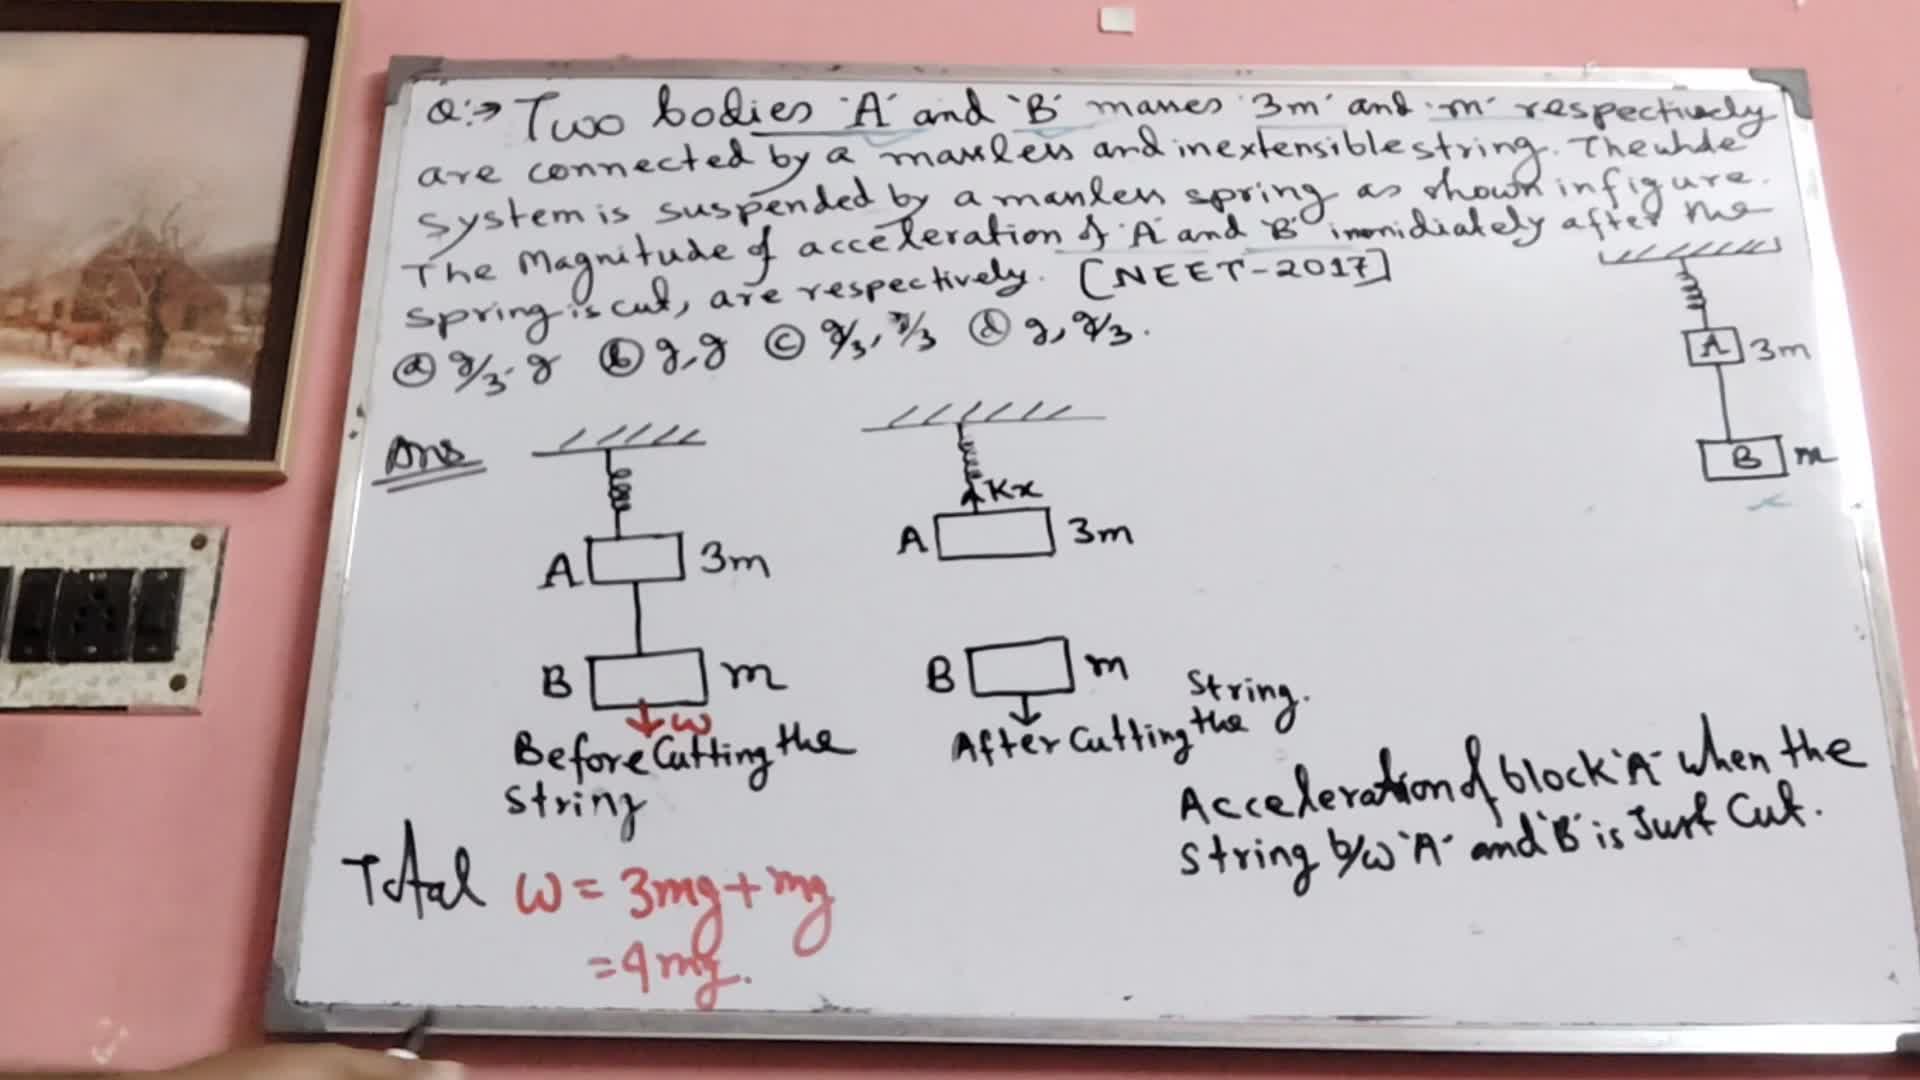 Q:→ Two bodies 'A' and 'B' masses '3m' and 'm' respectively
are connected by a massless and inextensible string. The whole
system is suspended by a massless spring as shown in figure.
The Magnitude of acceleration of 'A' and 'B' immidiately after the
spring is cut, are respectively. [NEET-2017]
(a) g/3, g (b) g, g (c) g/3, g/3 (d) g, g/3.
A 3m
B m
Ans
A 3m
B m
w
Before Cutting the
string
Kx
A 3m
B m
After Cutting the String.
Total w = 3mg + mg
= 4mg.
Acceleration of block 'A' when the
string b/w 'A' and 'B' is Just Cut.